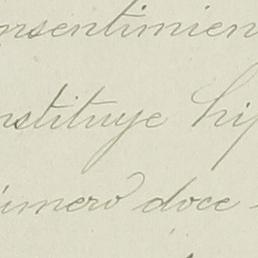 nsentimien
nstituye hip
úmero doce